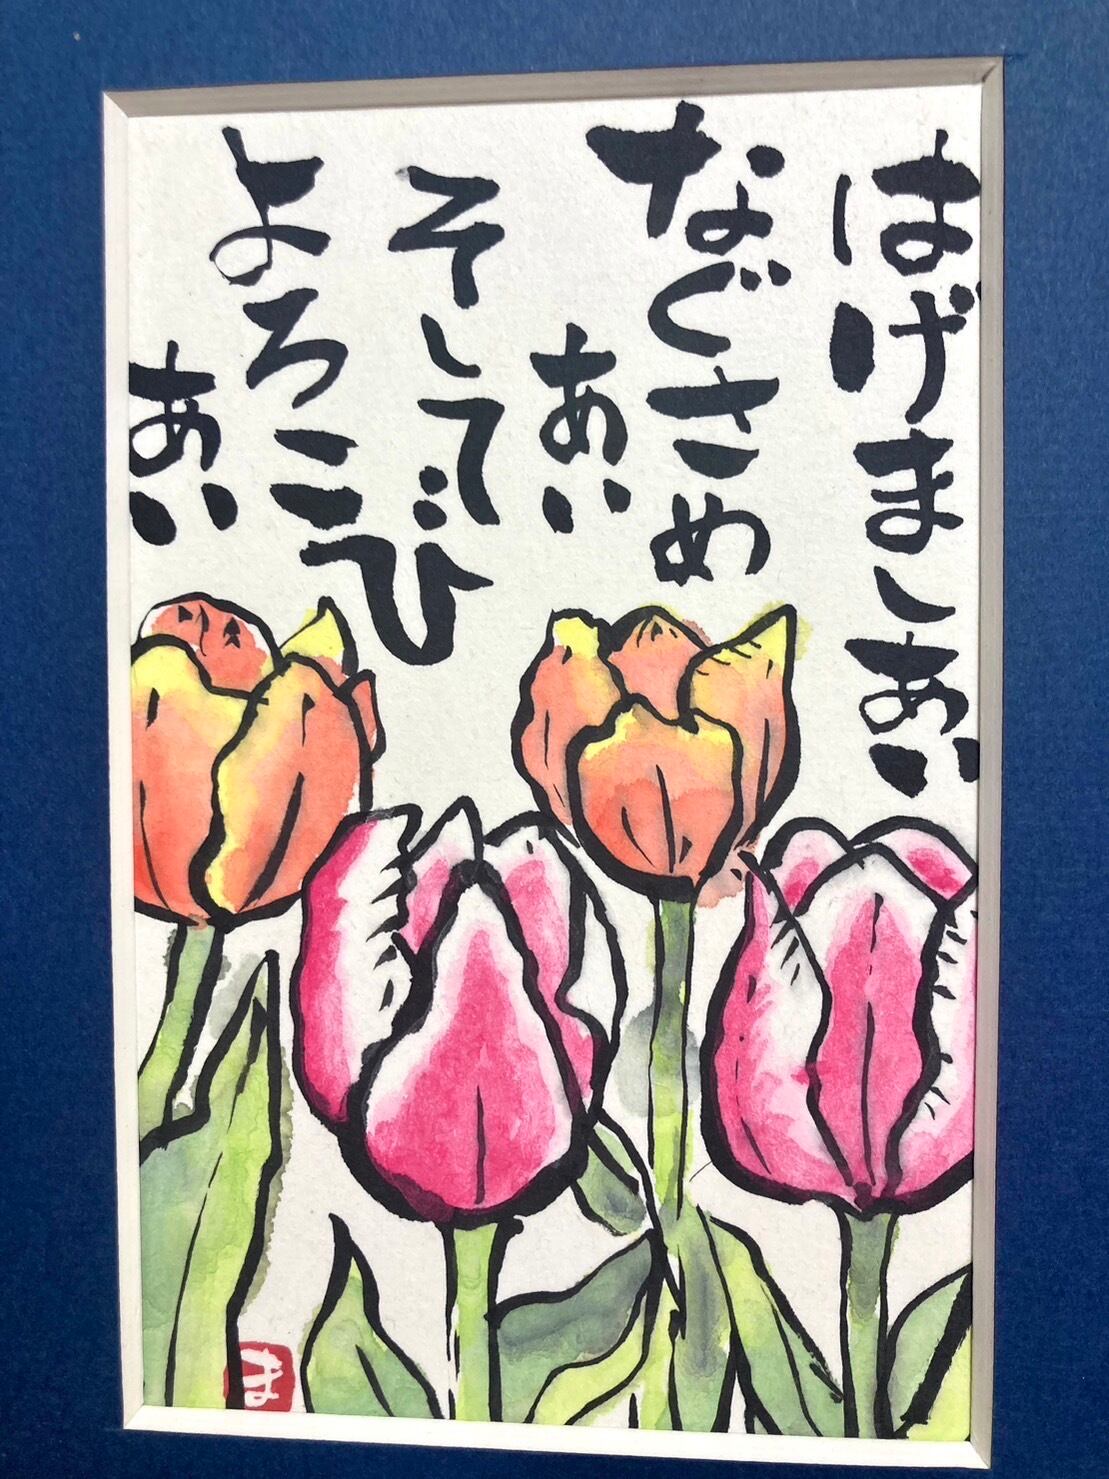 はげましあい
なぐさめ
あい
そして
よろこび
あい
ま